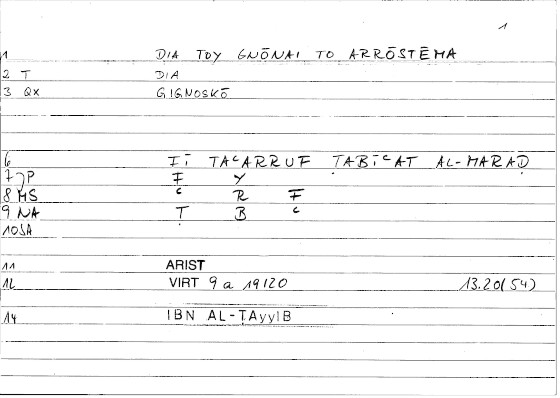 1
1 DIA TOY GNŌNAI TO ARRŌSTĒMA
2 T DIA
3 QX GIGNOSKŌ
6 FĪ TAʿARRUF ṬABĪʿAT AL-MARAḌ
7 JP F Y
8 MS ʿ R F
9 NA Ṭ B ʿ
10 SA
11 ARIST
12 VIRT 9 a 19/20 13.20(54)
14 IBN AL-ṬAyyIB